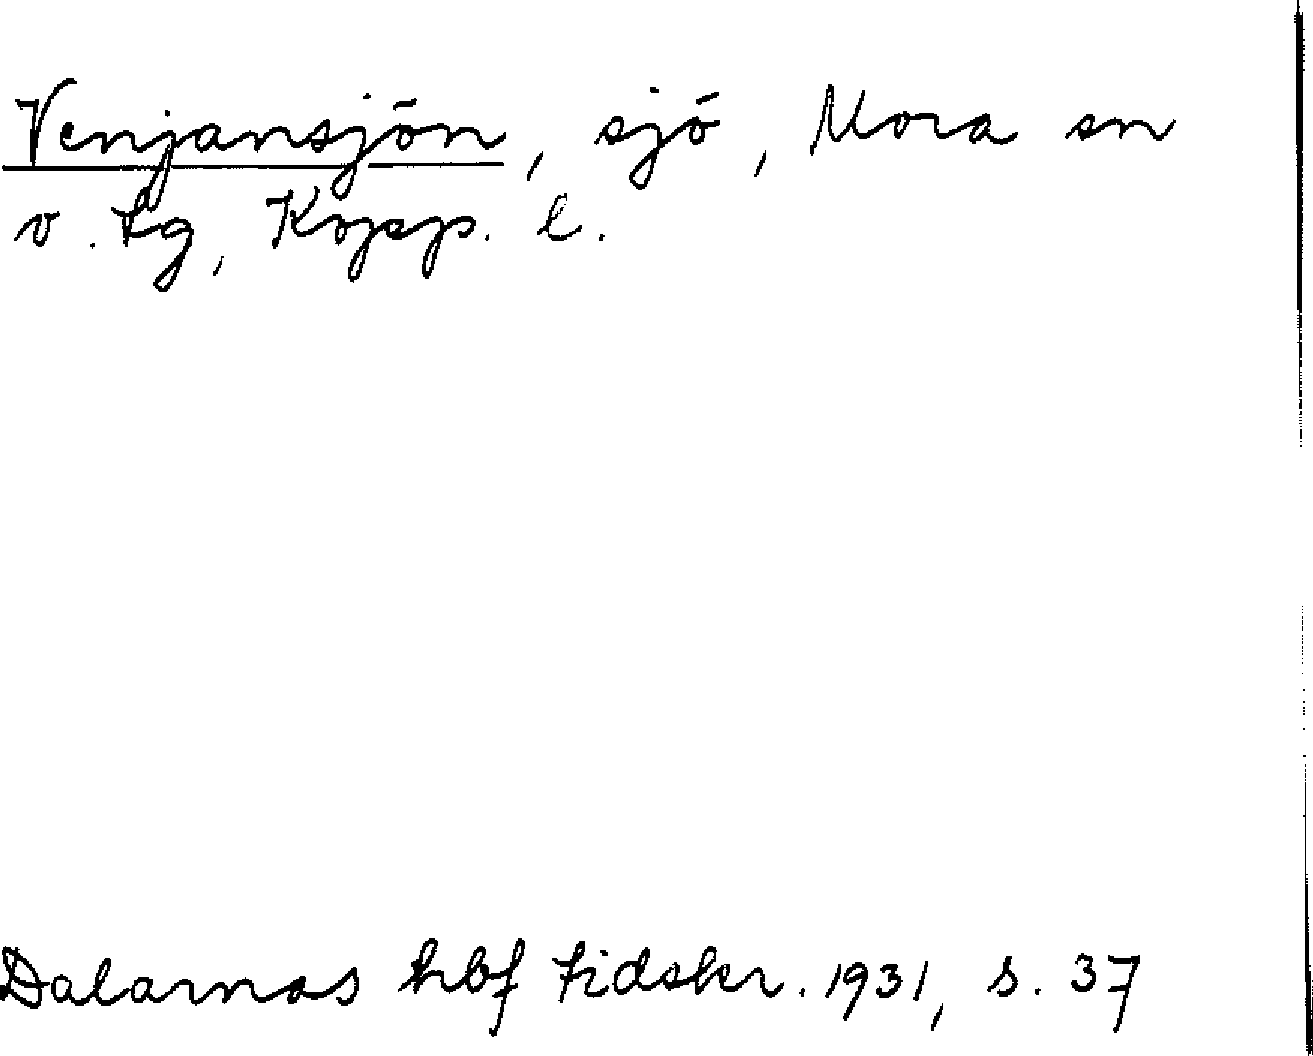 Venjansjön, sjö, Mora sn
o. tg, Kopp. l.
Dalarnas hbf tidskr. 1931, s. 37